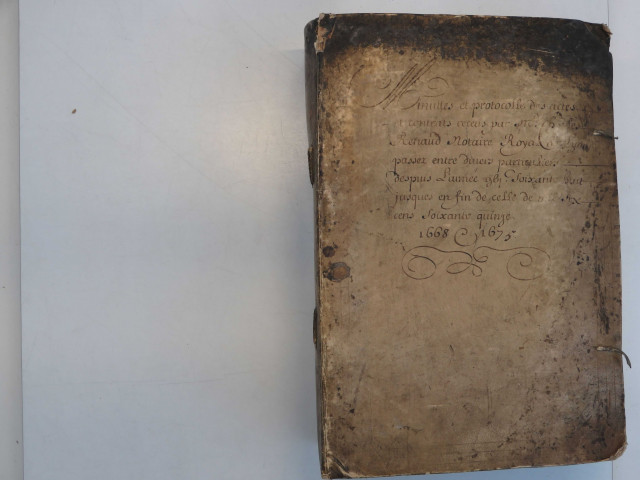 Minuttes et protocolle des actes
et contrats receus par Me
Renaud Notaire Royal
passez entre divers particuliers
despuis L'année 1667 Soixante huit
jusques en fin de celle de
cens Soixante quinze
1668 1675